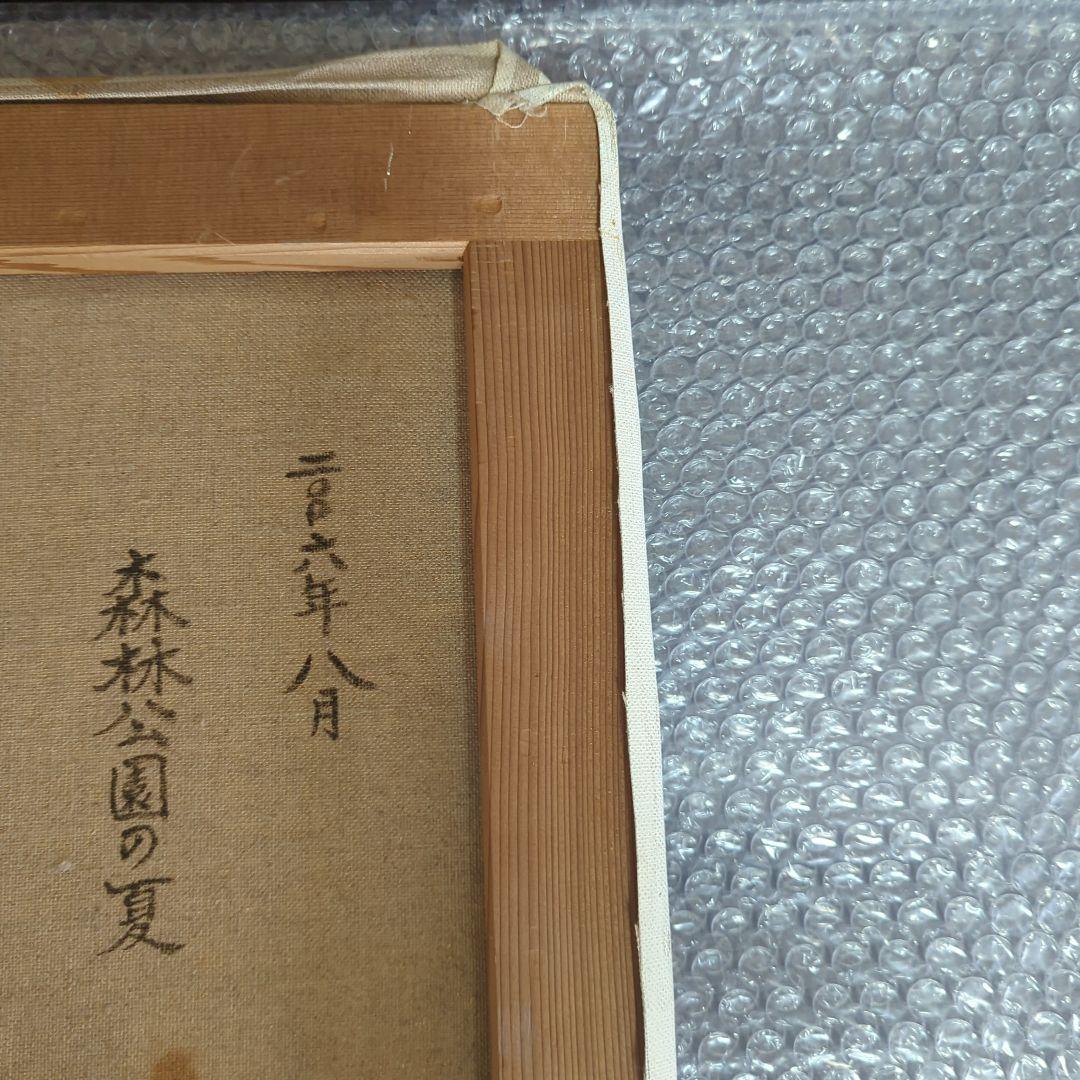 二〇〇六年八月
森林公園の夏